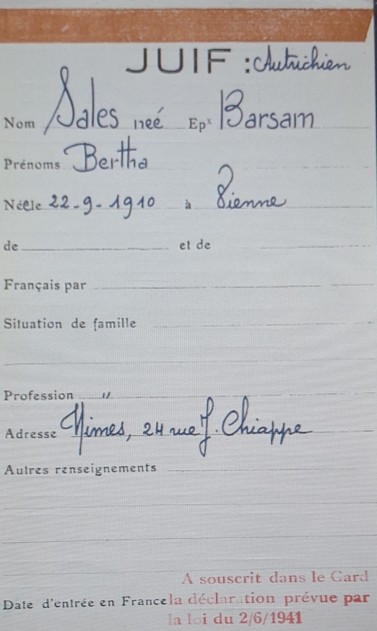 JUIF : Autrichien
Nom Sales neé Epˣ Barsam
Prénoms Bertha
Né(e)le 22-9-1910 à Vienne
de et de
Français par
Situation de famille
Profession "
Adresse Nîmes, 24 rue J. Chiappe
Autres renseignements
A souscrit dans le Gard
Date d'entrée en France la déclaration prévue par
la loi du 2/6/1941